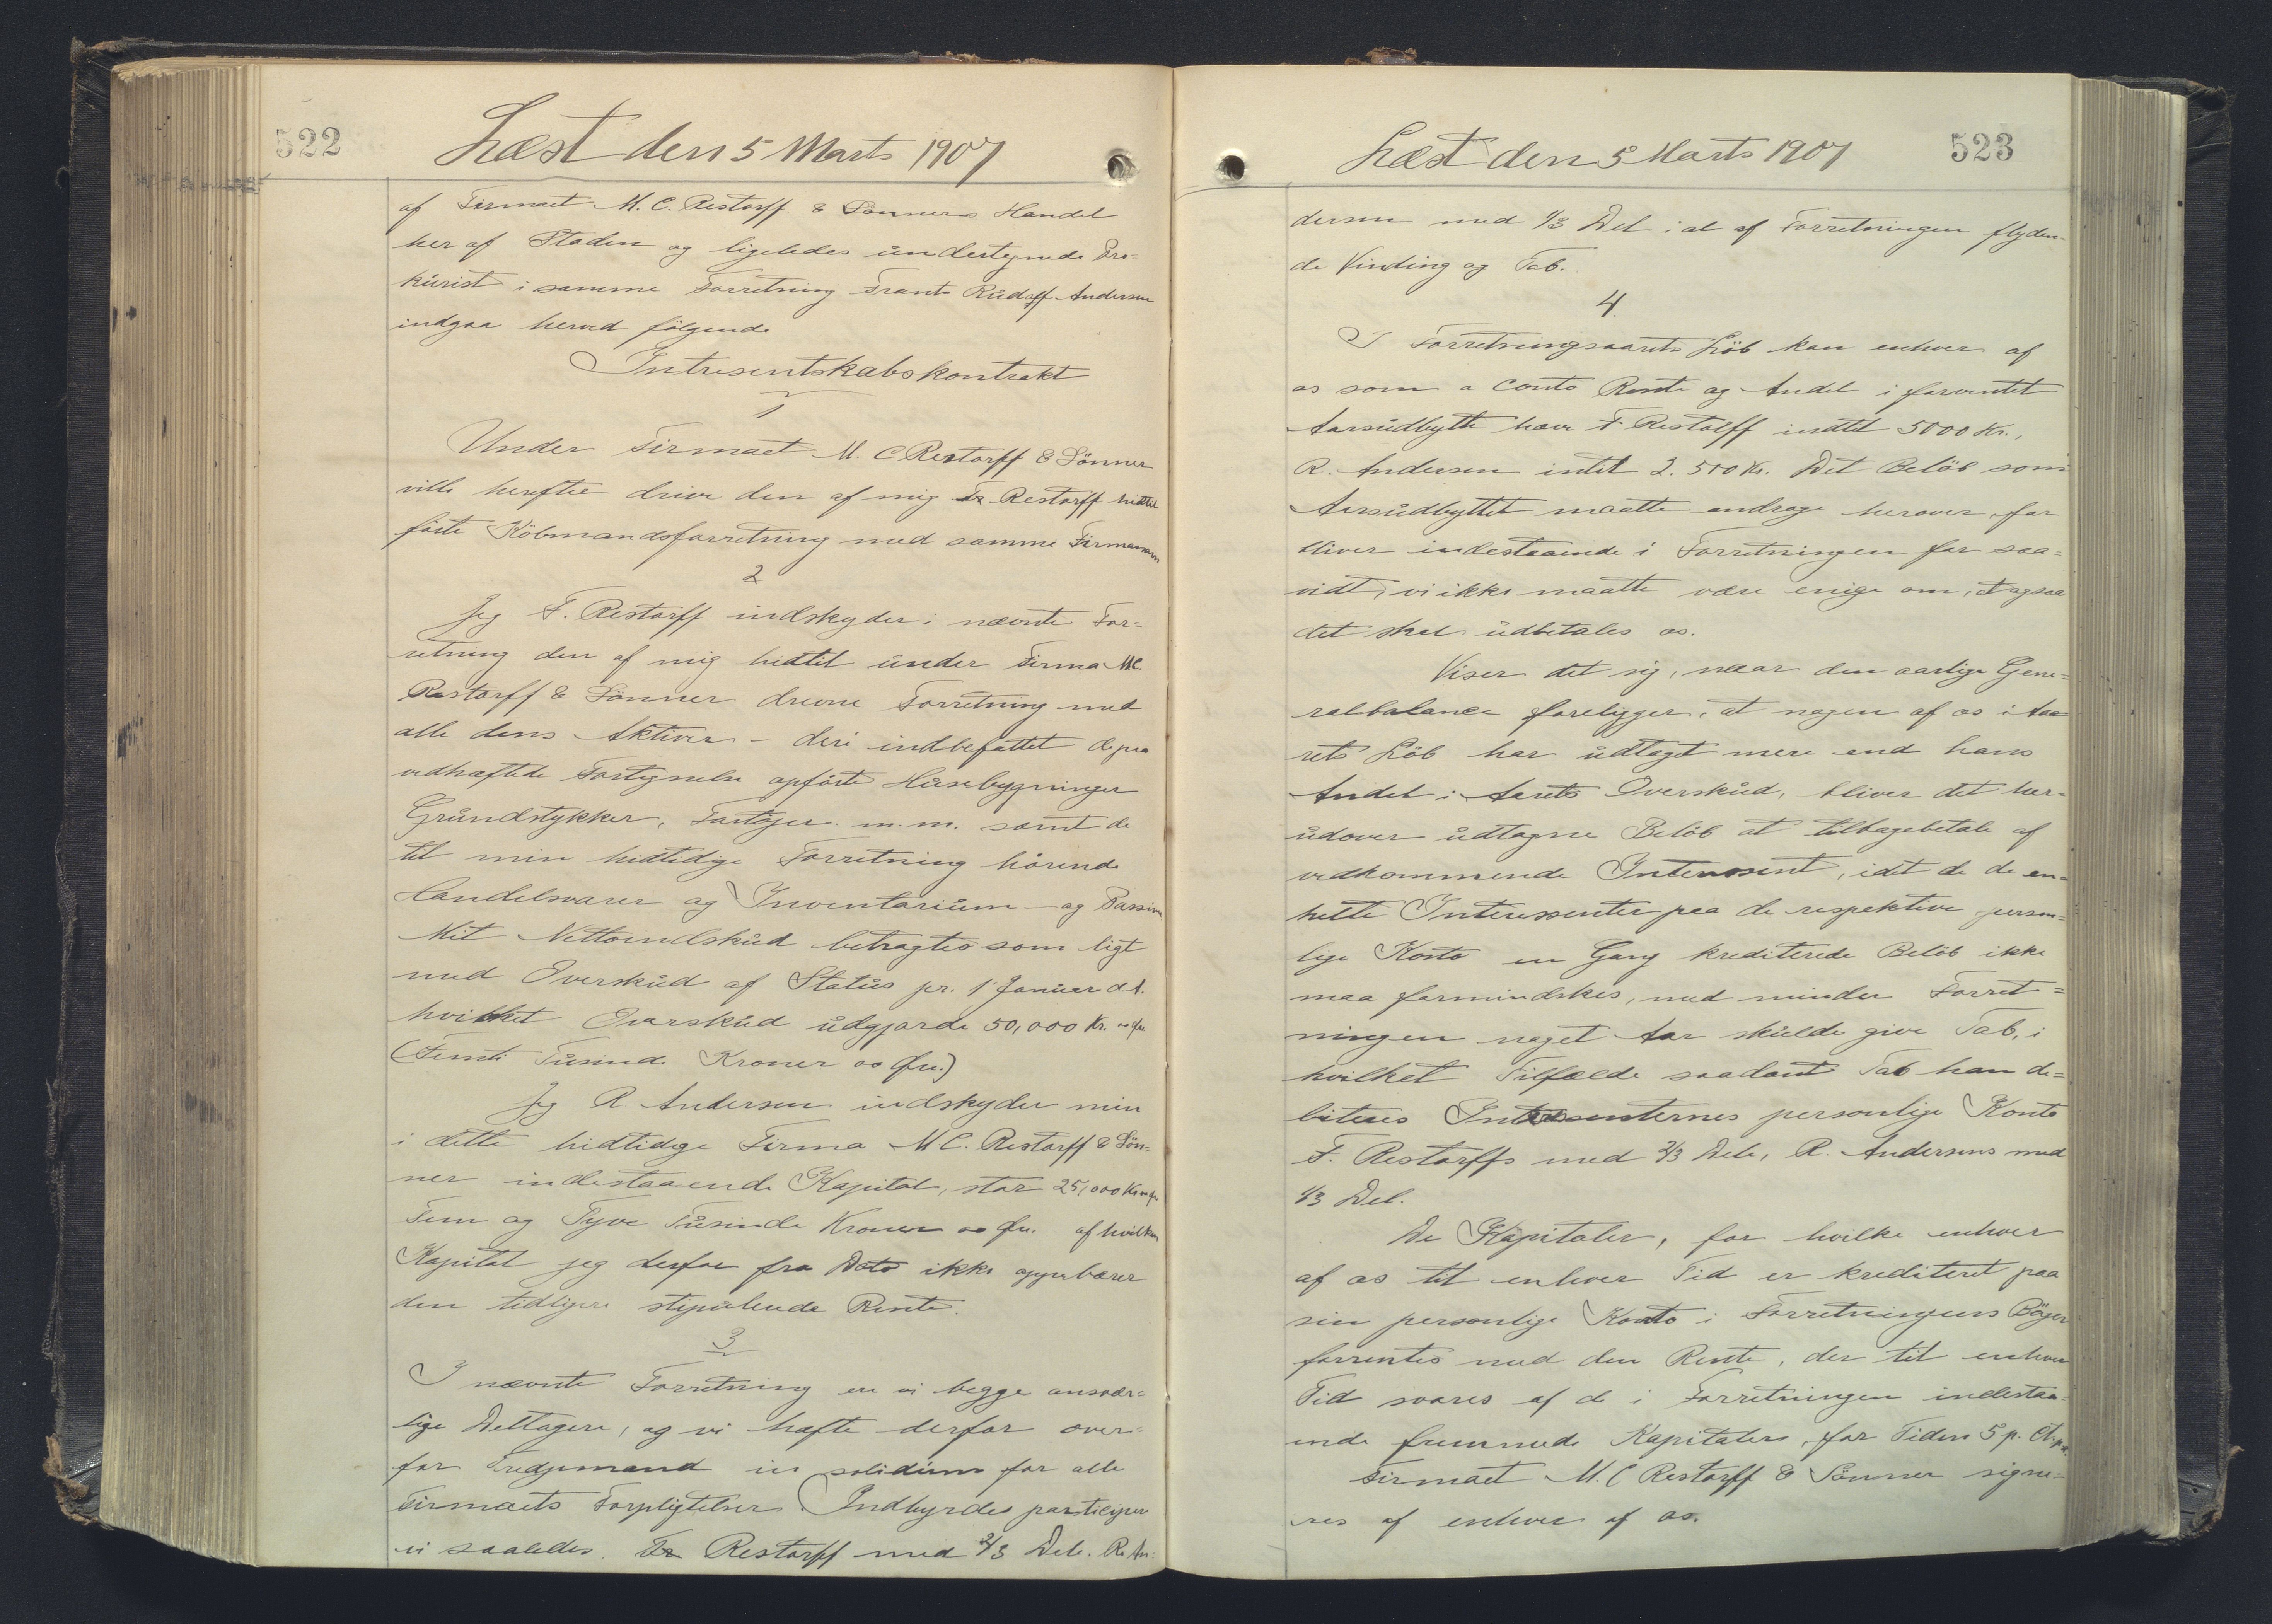 522
Læst den 5 Marts 1907
af Firmaet M. C. Restorff & Sønners Handel
her af Staden og ligeledes undertegnede Pro=
kurist i samme Forretning Frants Rudolf Andersen
indgaa herved følgende
Intresentskabskontrakt
1
Under Firmaet M. C Restorff & Sönner
ville herefter drive den af mig Fr Restorff hidtil
förte Köbmandsforretning med samme Firmanavn
2
Jeg F. Restorff indskyder i nævnte For=
retning den af mig hidtil under Firma M C.
Restorff & Sönner drevne Forretning med
alle dens Aktiver - deri indbefattet de paa
vedhæftede Fortegnelse opförte Husebygninger
Grundstykker, Fartøjer m.m. samt de
til min hidtidige Forretning hörende
Handelsvarer og Inventarium - og Passiver
Mit Nettoindskud betragtes som ligt
med Overskud af Status pr. 1 Januar d.A.
hvilket Overskud udgjorde 50,000 Kr. 00 Øre
(Femti Tusinde Kroner 00 Øre.)
Jeg R Andersen indskyder min
i dette hidtidige Firma M C. Restorff & Sön=
ner indestaaende Kapital, stor 25,000 Kr 00 Øre
Fem og Tyve Tusinde Kroner 00 Øre. af hvilken
Kapital jeg derfor fra Dato ikke oppebærer
den tidligere stipulerede Rente.
3
I nævnte Forretning ere vi begge ansvar=
lige Deltagere, og vi hæfte derfor over=
for Tredjemand in solidum for alle
Firmaets Forpligtelser. Indbyrdes participere
vi saaledes. Fr Restorff med 2/3 Dele. R. An=
Læst den 5 Marts 1907
523
dersen med 1/3 Del i al af Forretningen flyden=
de Vinding og Tab.
4.
I Forretningsaarets Löb kan enhver af
os som a conto Rente og Andel i forventet
Aarsudbytte hæve F. Restorff indtil 5000 Kr.,
R. Andersen intil 2.500 Kr. Det Belöb som
Aarsudbyttet maatte andrage herover, for
bliver indestaaende i Forretningen for saa=
vidt, vi ikke maatte være enige om, at ogsaa
det skal udbetales os.
Viser det sig, naar den aarlige Gene=
ralbalance foreligger, at nogen af os i Aa=
rets Löb har udtaget mere end hans
Andel i Aarets Overskud, bliver det her=
udover udtagne Belöb at tilbagebetale af
vedkommende Interessent, idet de de en=
kelte Interessenter paa de respektive person=
lige Konto en Gang krediterede Belöb ikke
maa formindskes, med minder Forret=
ningen noget Aar skulde give Tab, i
hvilket Tilfælde saadant Tab kan de=
biteres Interessenternes personlige Konto
F. Restorffs med 2/3 Dele, R. Andersens med
1/3 Del.
De Kapitaler, for hvilke enhver
af os til enhver Tid er krediteret paa
sin personlige Konto i Forretningens Böger
forrentes med den Rente, der til enhver
Tid svares af de i Forretningen indestaa=
ende fremmede Kapitaler, for Tiden 5 p. Ct. p.a.
Firmaet M. C Restorff & Sönner signe=
res af enhver af os.